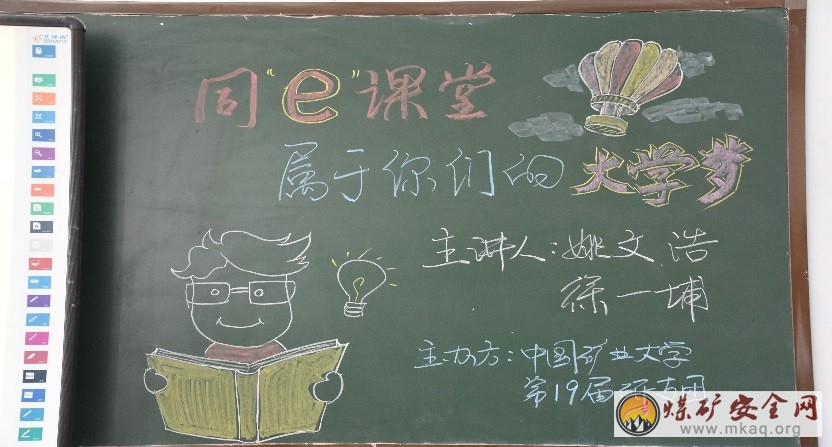 同"e"课堂
属于你们的大学梦
主讲人:姚文浩
徐一埔
主办方:中国矿业大学
第19届研支团
煤矿安全网
www.mkaq.org